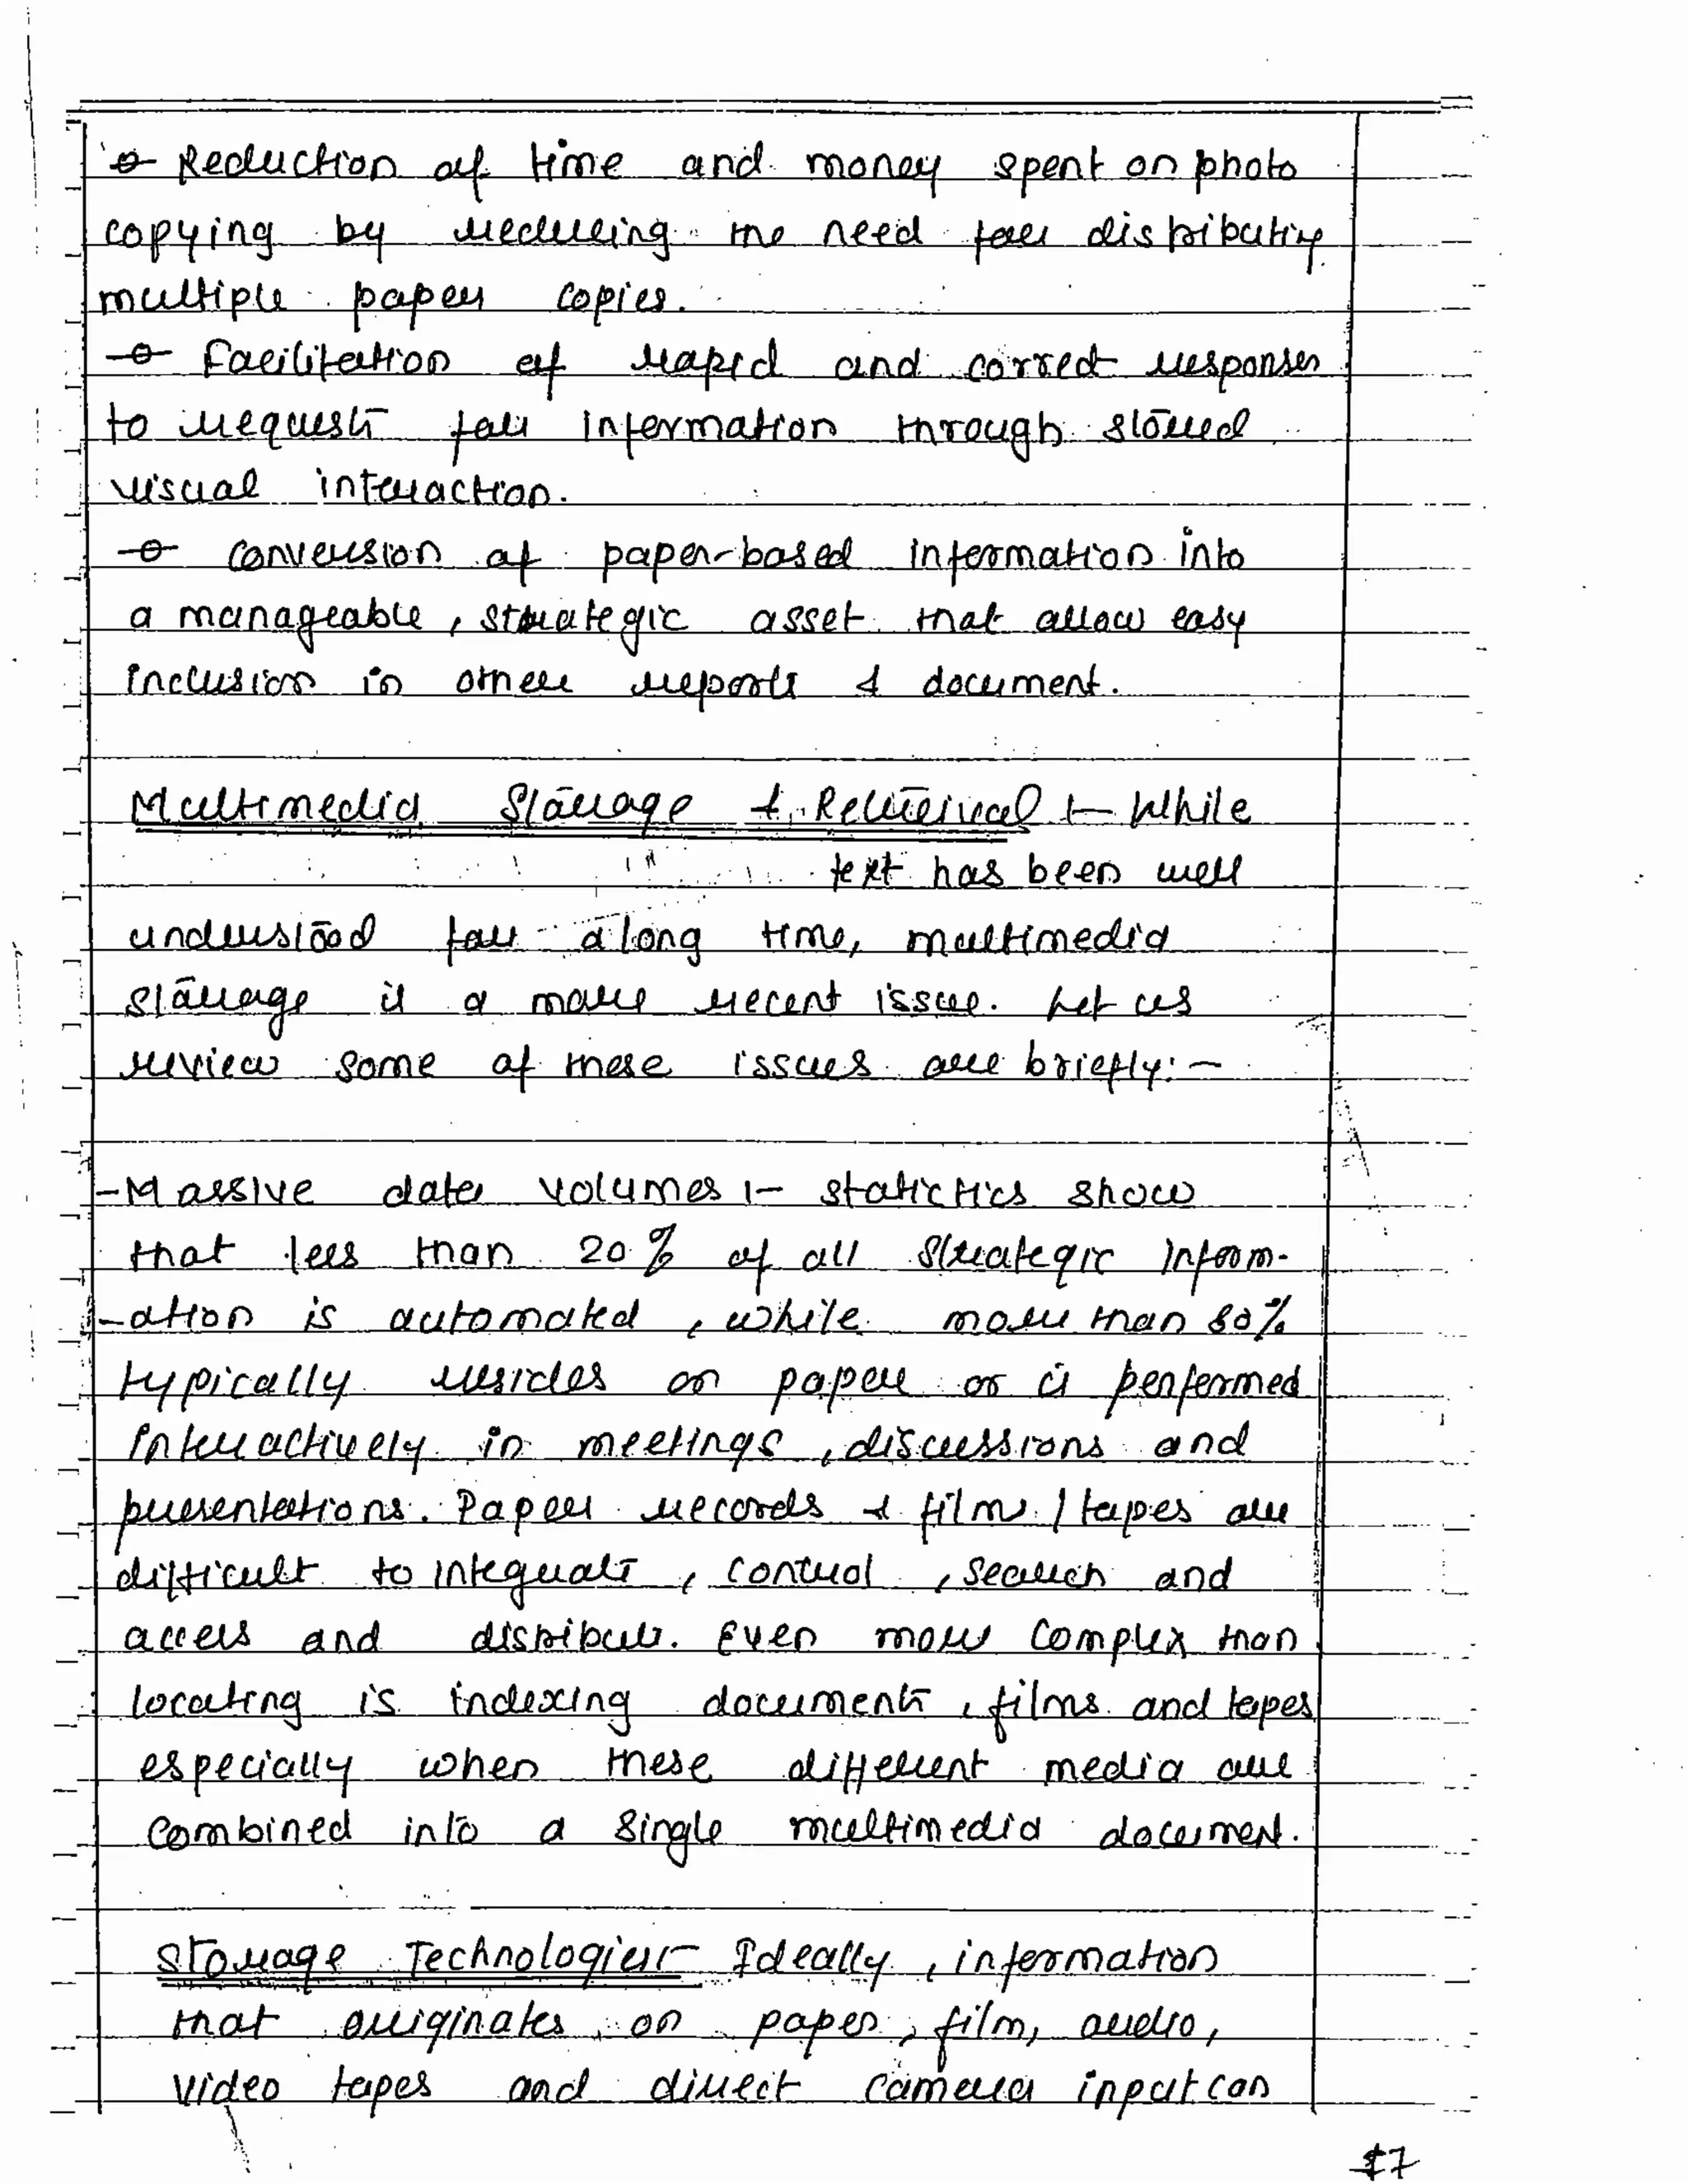 -o- Reduction of time and money spent on photo
copying by reducing the need for distributing
multiple paper copies.
-o- Facilitation of rapid and correct responses
to requests for information through stored
visual interaction.
-o- Conversion of paper-based information into
a manageable, strategic asset that allow easy
inclusion in other reports & document.
Multimedia Storage & Retrieival :- While
text has been well
understood for a long time, multimedia
storage is a more recent issue. Let us
review some of these issues are briefly:-
-Massive data volumes :- statictics show
that less than 20% of all strategic inform-
-ation is automated, while more than 80%
typically resides on paper or is performed
interactively in meetings, discussions and
presentations. Paper records & films/tapes are
difficult to integrate, control, search and
access and distribute. Even more complex than
locating is indexing documents, films and tapes
especially when these different media are
combined into a single multimedia document.
Storage Technologies:- Ideally, information
that originates on paper, film, audio,
video tapes and direct camera input can
17